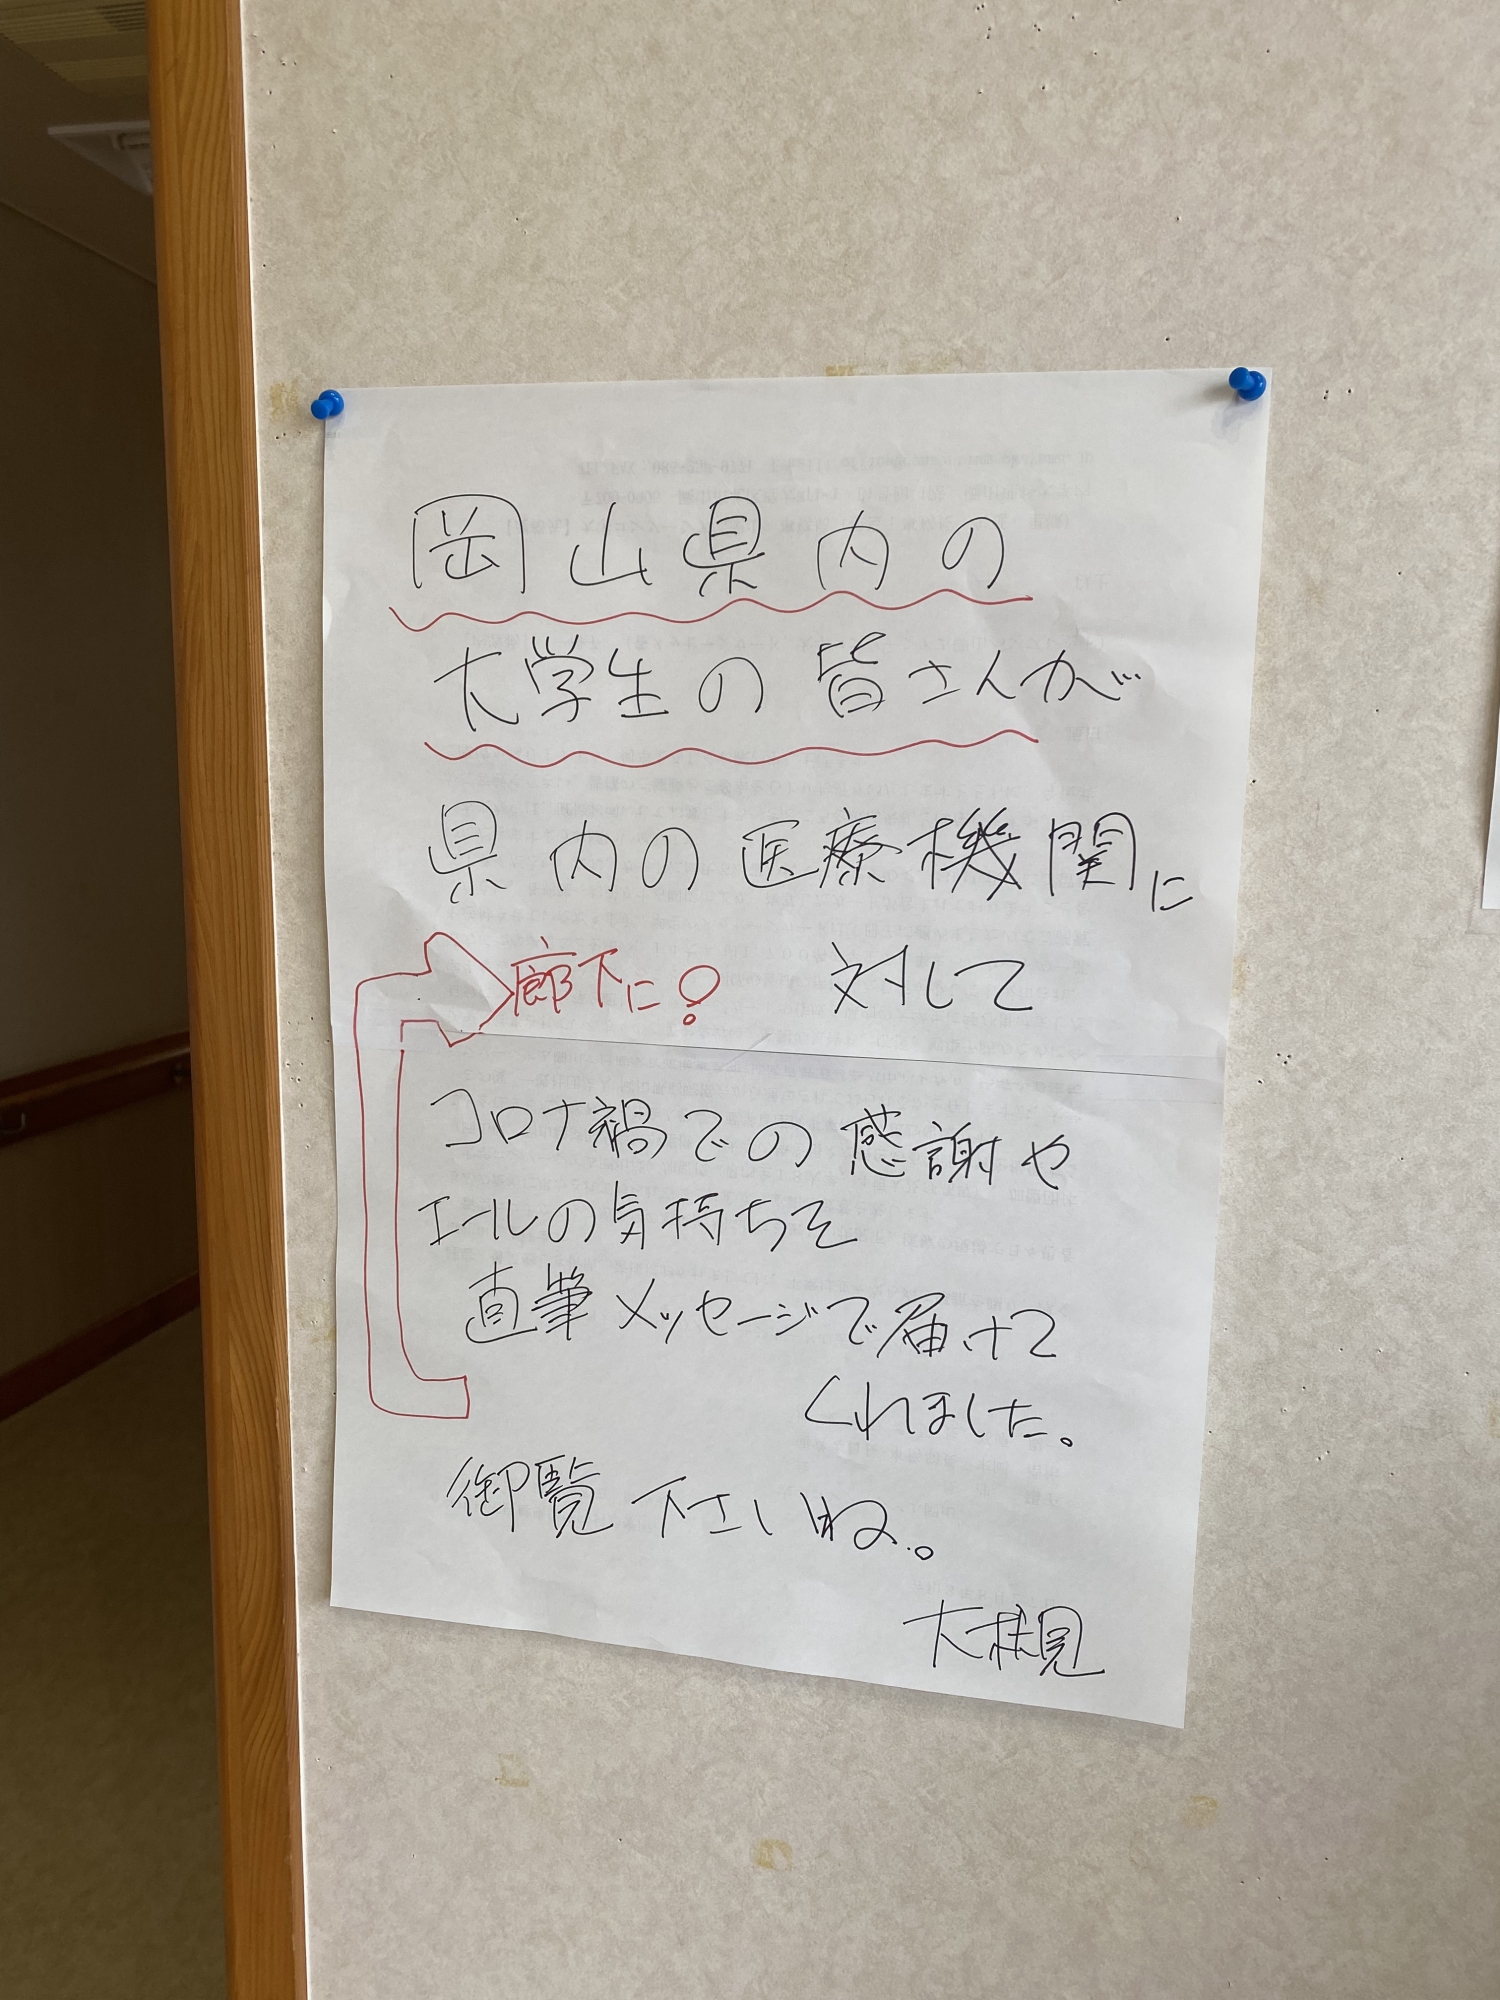 岡山県内の
大学生の皆さんが
県内の医療機関に
対して
廊下に!
コロナ禍での感謝や
エールの気持ちを
直筆メッセージで届けて
くれました。
御覧下さいね。